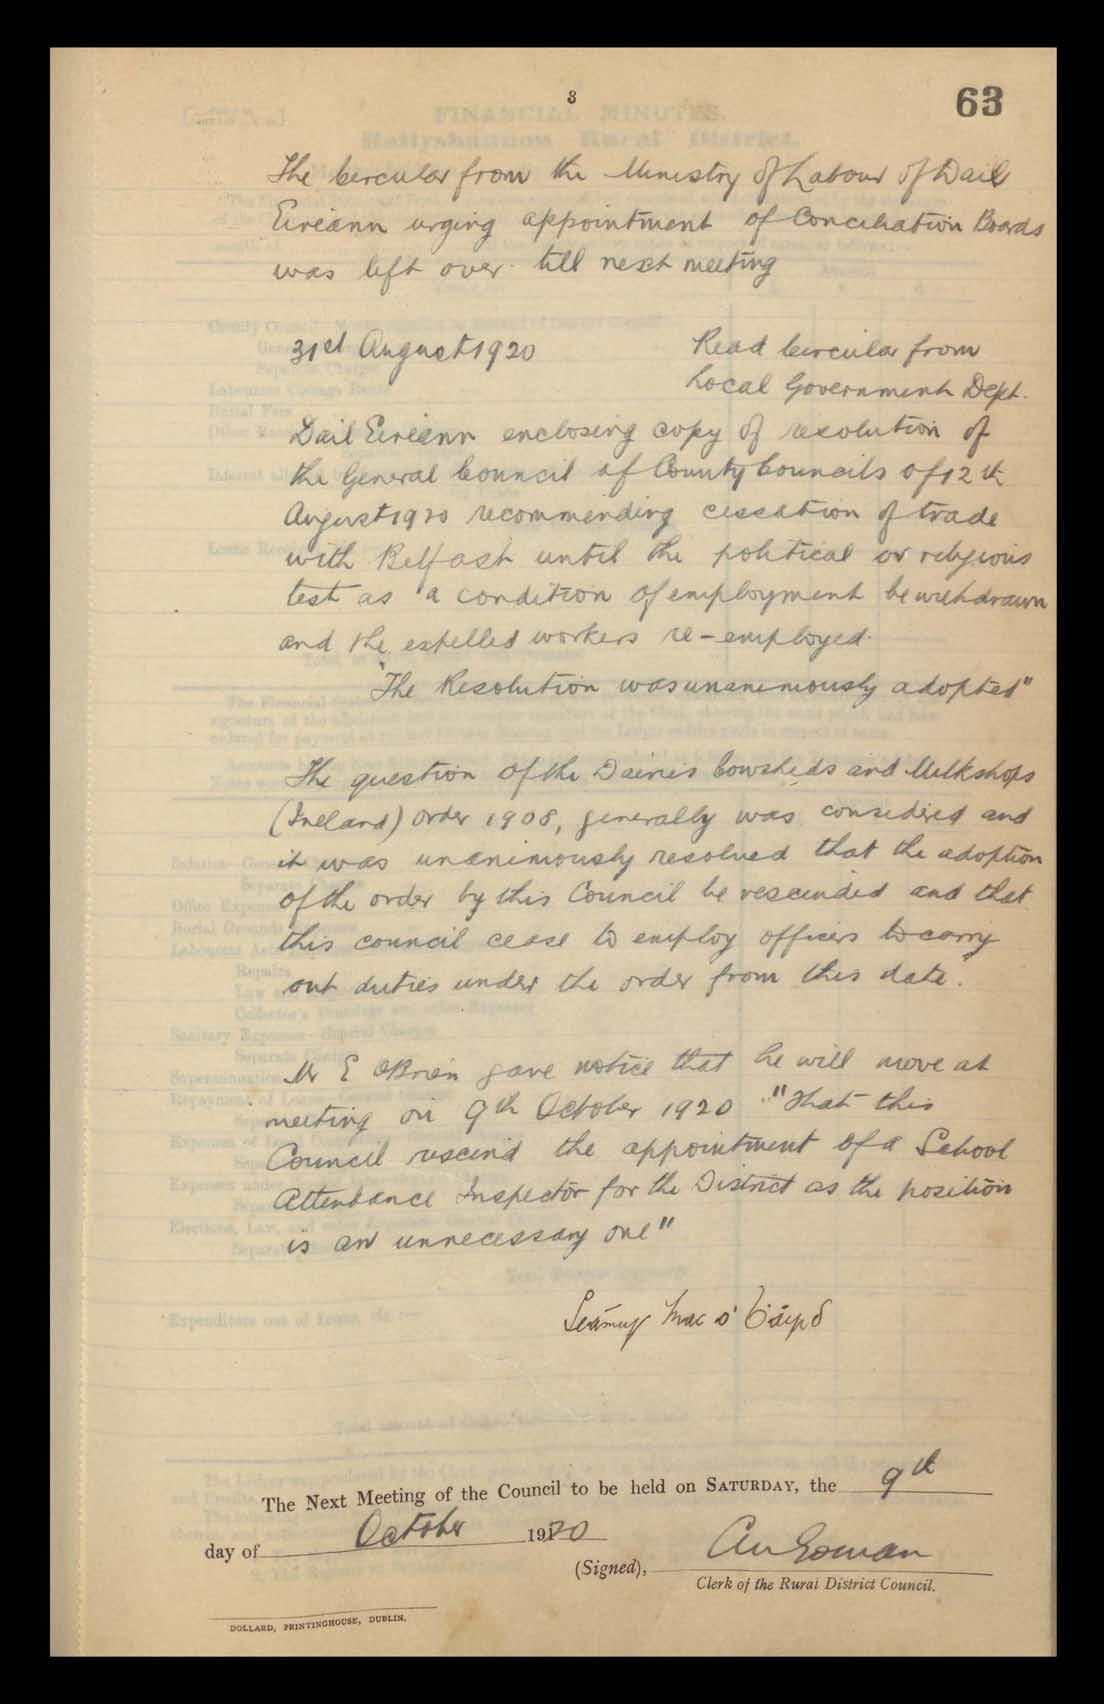 3
63
FINANCIAL MINUTES.
Ballyshannon Rural District.
The Circular from the Ministry of Labour of Dail
Eireann urging appointment of Conciliation Boards
was left over till next meeting
31st August 1920
Read Circular from
Local Government Dept.
Dail Eireann enclosing copy of resolution of
the General Council of County Councils of 12th
August 1920 recommending cessation of trade
with Belfast until the political or religious
test as a condition of employment be withdrawn
and the expelled workers re-employed.
"The Resolution was unanimously adopted"
The question of the Dairies Cowsheds and Milkshops
(Ireland) order 1908, generally was considered and
it was unanimously resolved that the adoption
of the order by this Council be rescinded and that
this council cease to employ officers to carry
out duties under the order from this date".
Mr E OBrien gave notice that he will move at
meeting on 9th October 1920 "That this
Council rescind the appointment of a School
Attendance Inspector for the District as the position
is an unnecessary one"
Séamus Mac
The Next Meeting of the Council to be held on SATURDAY, the 9th
day of October 1920
(Signed),
Clerk of the Rural District Council.
DOLLARD, PRINTINGHOUSE, DUBLIN.